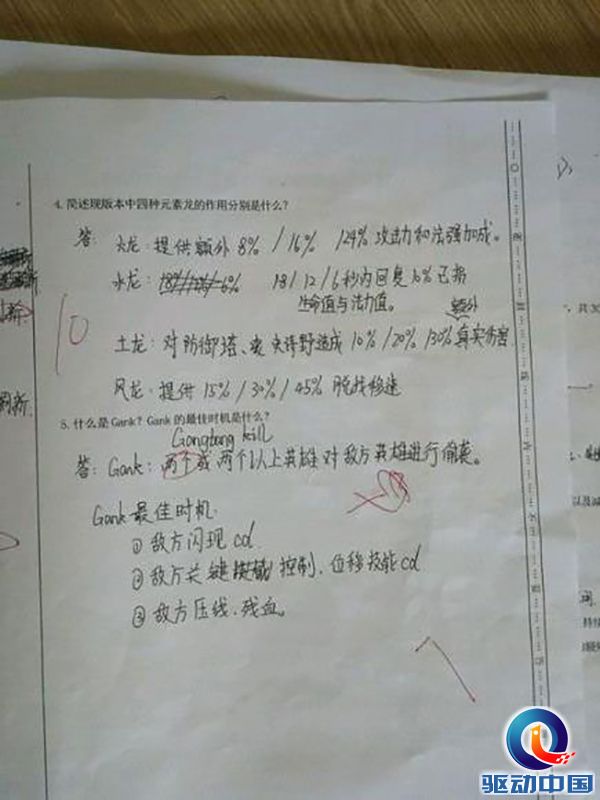 4. 简述现版本中四种元素龙的作用分别是什么?
答: 火龙: 提供额外 8% / 16% / 24% 攻击力和法强加成。
水龙: 18 / 12 / 6 秒内回复 10% 已损
生命值与法力值。
额外
土龙: 对防御塔、史诗野造成 10% / 20% / 30% 真实伤害
风龙: 提供 15% / 30% / 45% 脱战移速
10
5. 什么是 Gank? Gank 的最佳时机是什么?
Gangbang kill
答: Gank: 两个或两个以上英雄对敌方英雄进行偷袭。
Gank 最佳时机:
① 敌方闪现 cd
② 敌方关键 控制、位移技能 cd
③ 敌方压线、残血。
7
刷新.
共30
以及减
驱动中国